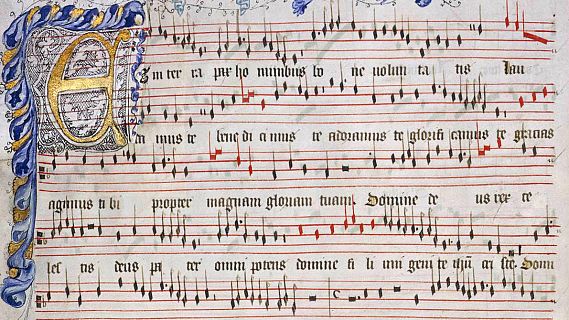 E in ter ra pax ho minibus bo ne volun ta tis lau
da mus te bene di cimus te adoramus te glorifi camus te gracias
agimus ti bi propter magnam gloriam tuam Domine de us rex ce
les tis deus pa ter omni potens domine fi li uni geni te ihu cri ste Domi